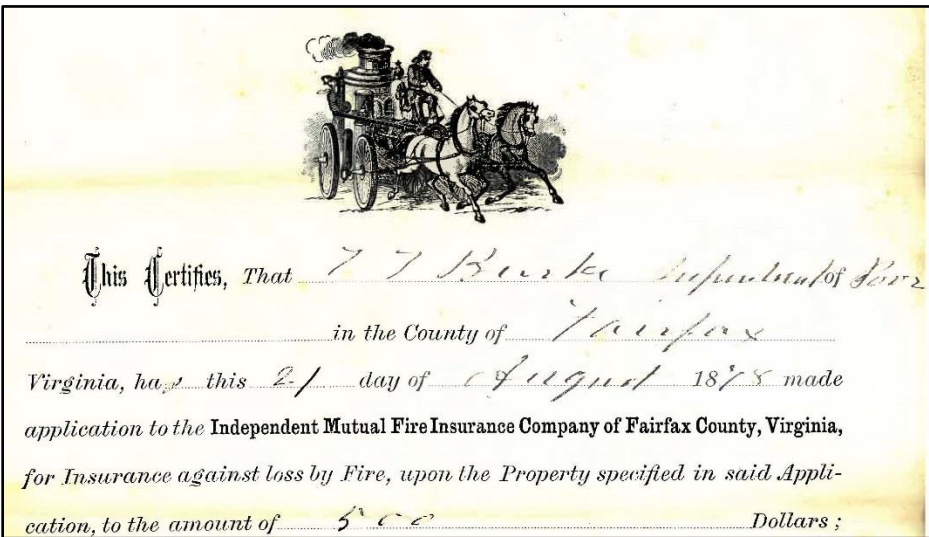 This Certifies, That T T Burke of Poor
in the County of Fairfax
Virginia, has this 21 day of August 1878 made
application to the Independent Mutual Fire Insurance Company of Fairfax County, Virginia,
for Insurance against loss by Fire, upon the Property specified in said Appli-
cation, to the amount of 500 Dollars ;